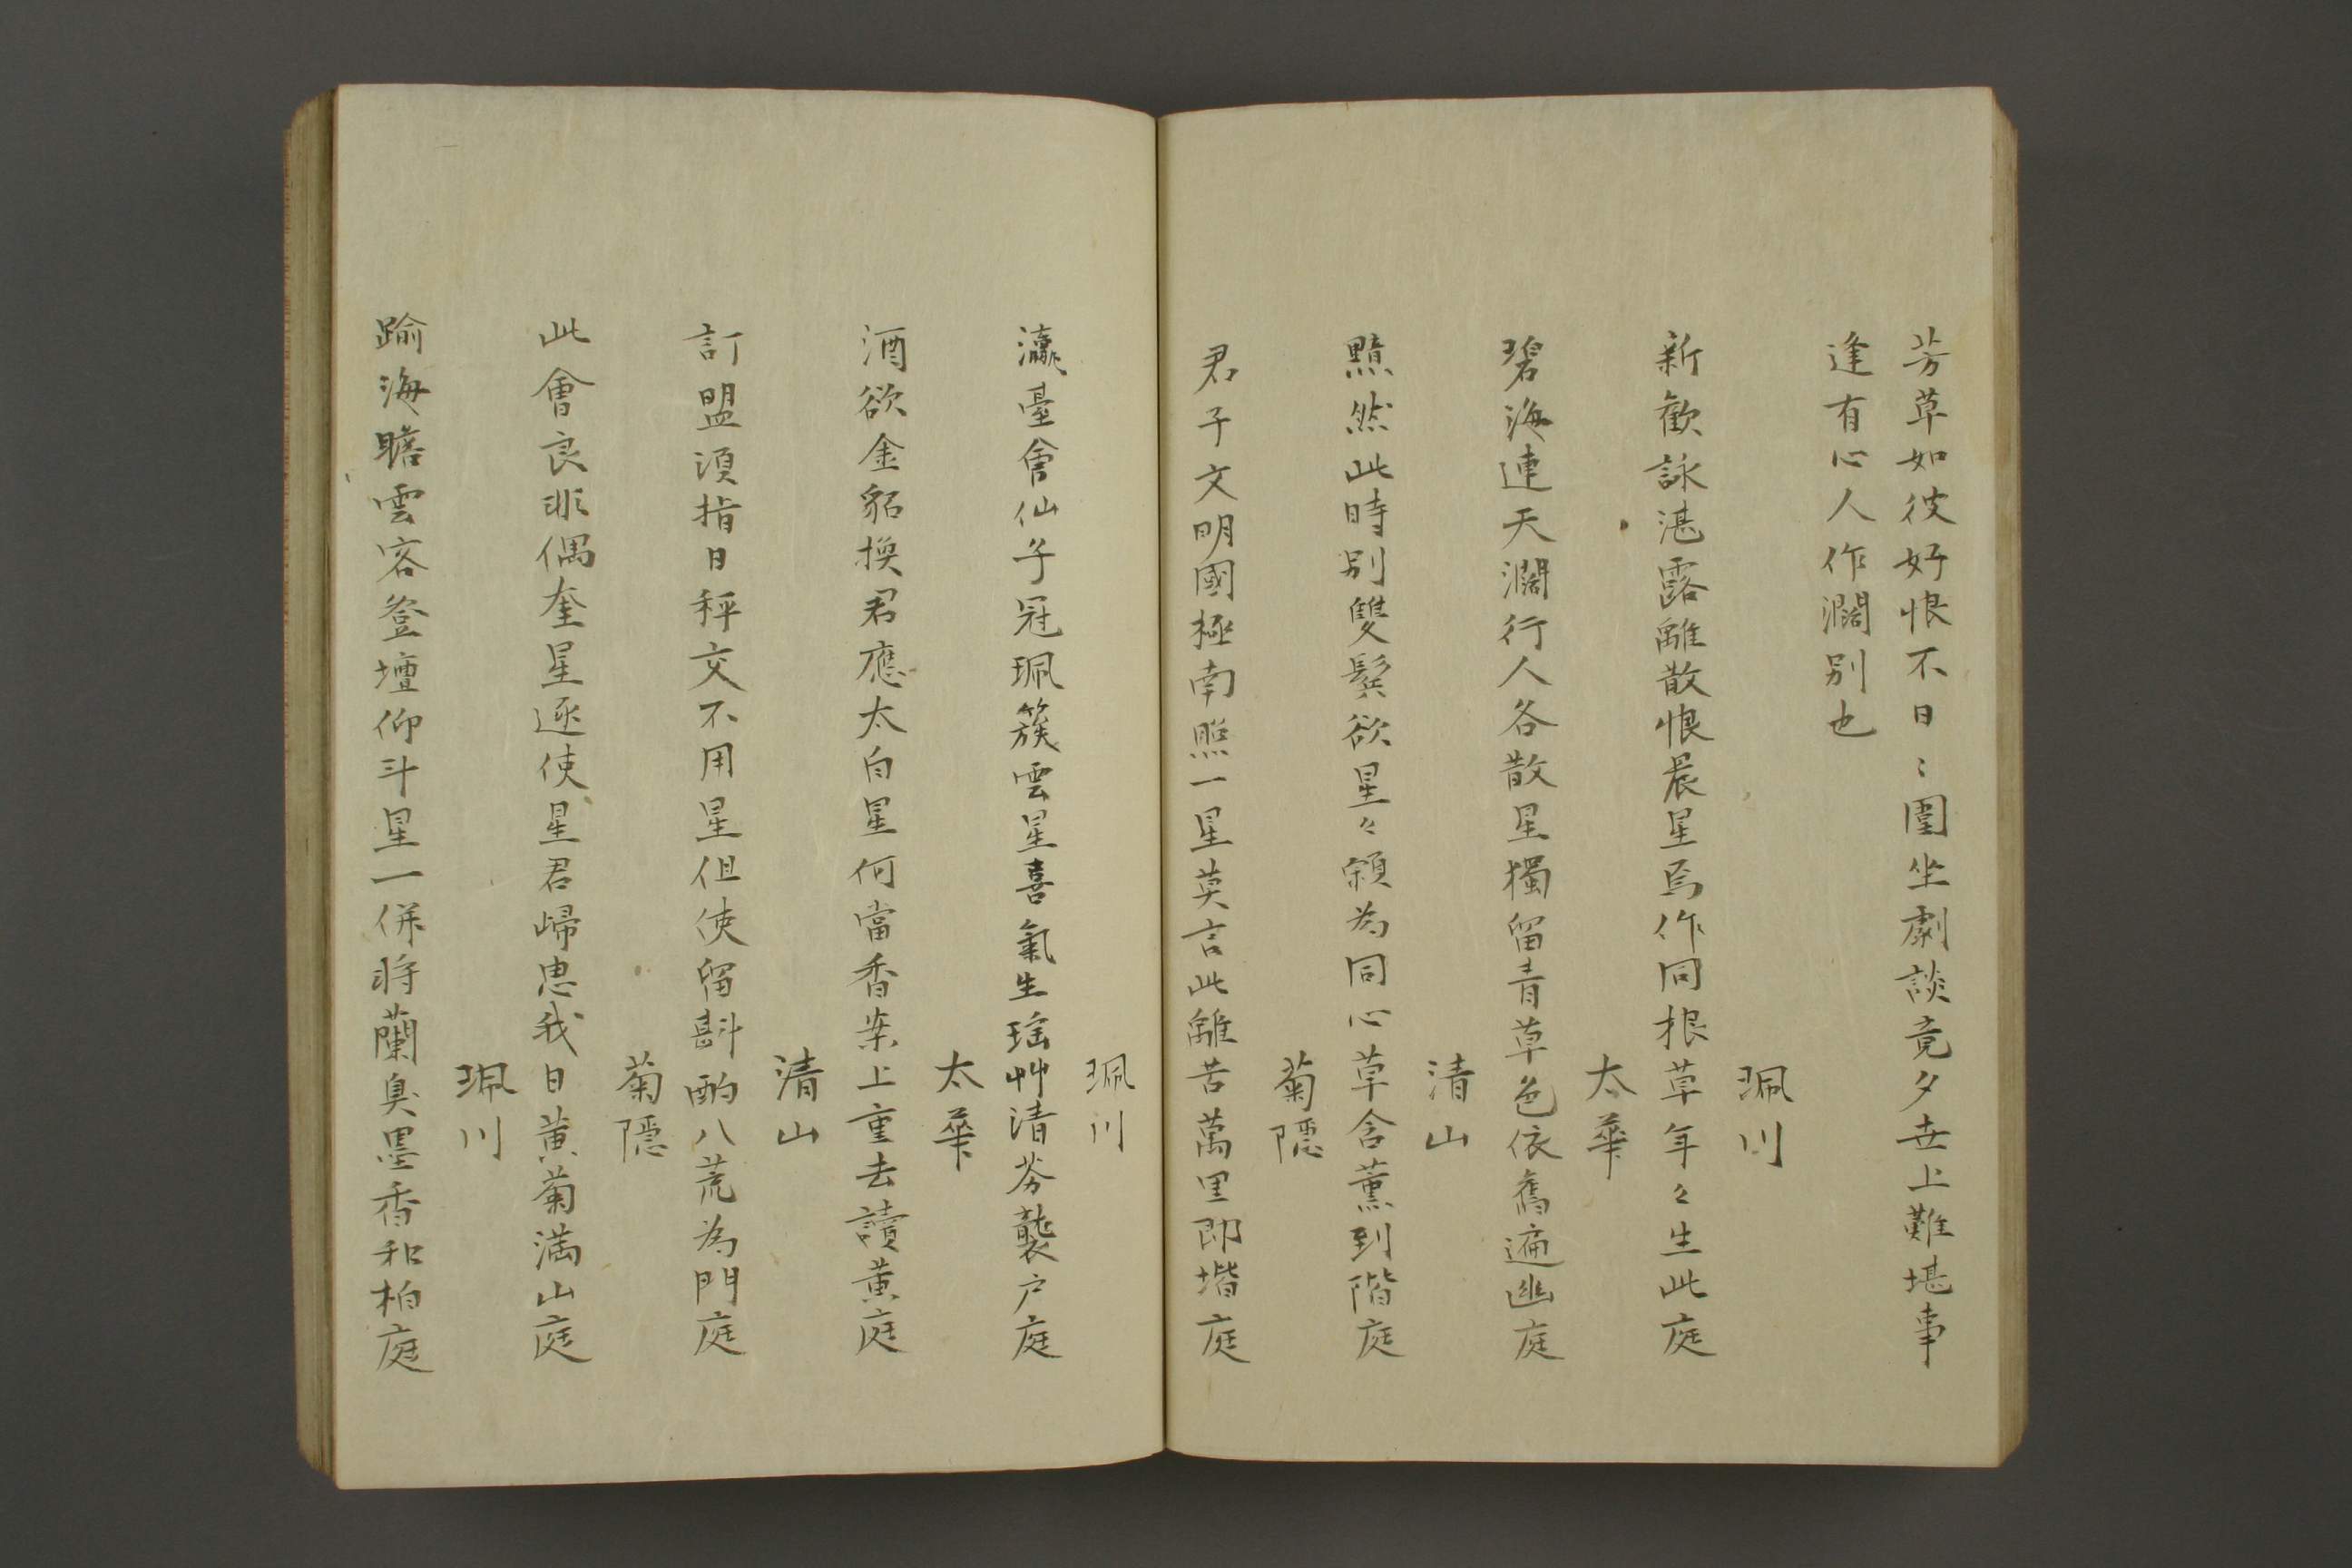 芳草如彼好恨不日〻圍坐劇談竟夕世上難堪事
逢有心人作濶别也
珮川
新歡詠湛露離散恨晨星焉作同根草年々生此庭
太華
碧海連天濶行人各散星獨留青草色依舊遍幽庭
清山
黯然此時别雙鬂欲星々額為同心草含薫到階庭
菊隱
君子文明國極南照一星莫言此離苦萬里即堦庭
珮川
瀛臺會仙子冠珮簇雲星喜氣生瑤艸清芬襲户庭
太華
酒欲金貂換君應太白星何當香案上重去讀黄庭
清山
訂盟須指日秤交不用星但使留斟酌八荒為門庭
菊隱
此會良非偶奎星逐使星君歸思我日黄菊満山庭
珮川
踰海瞻雲容登壇仰斗星一併将蘭臭墨香和柏庭